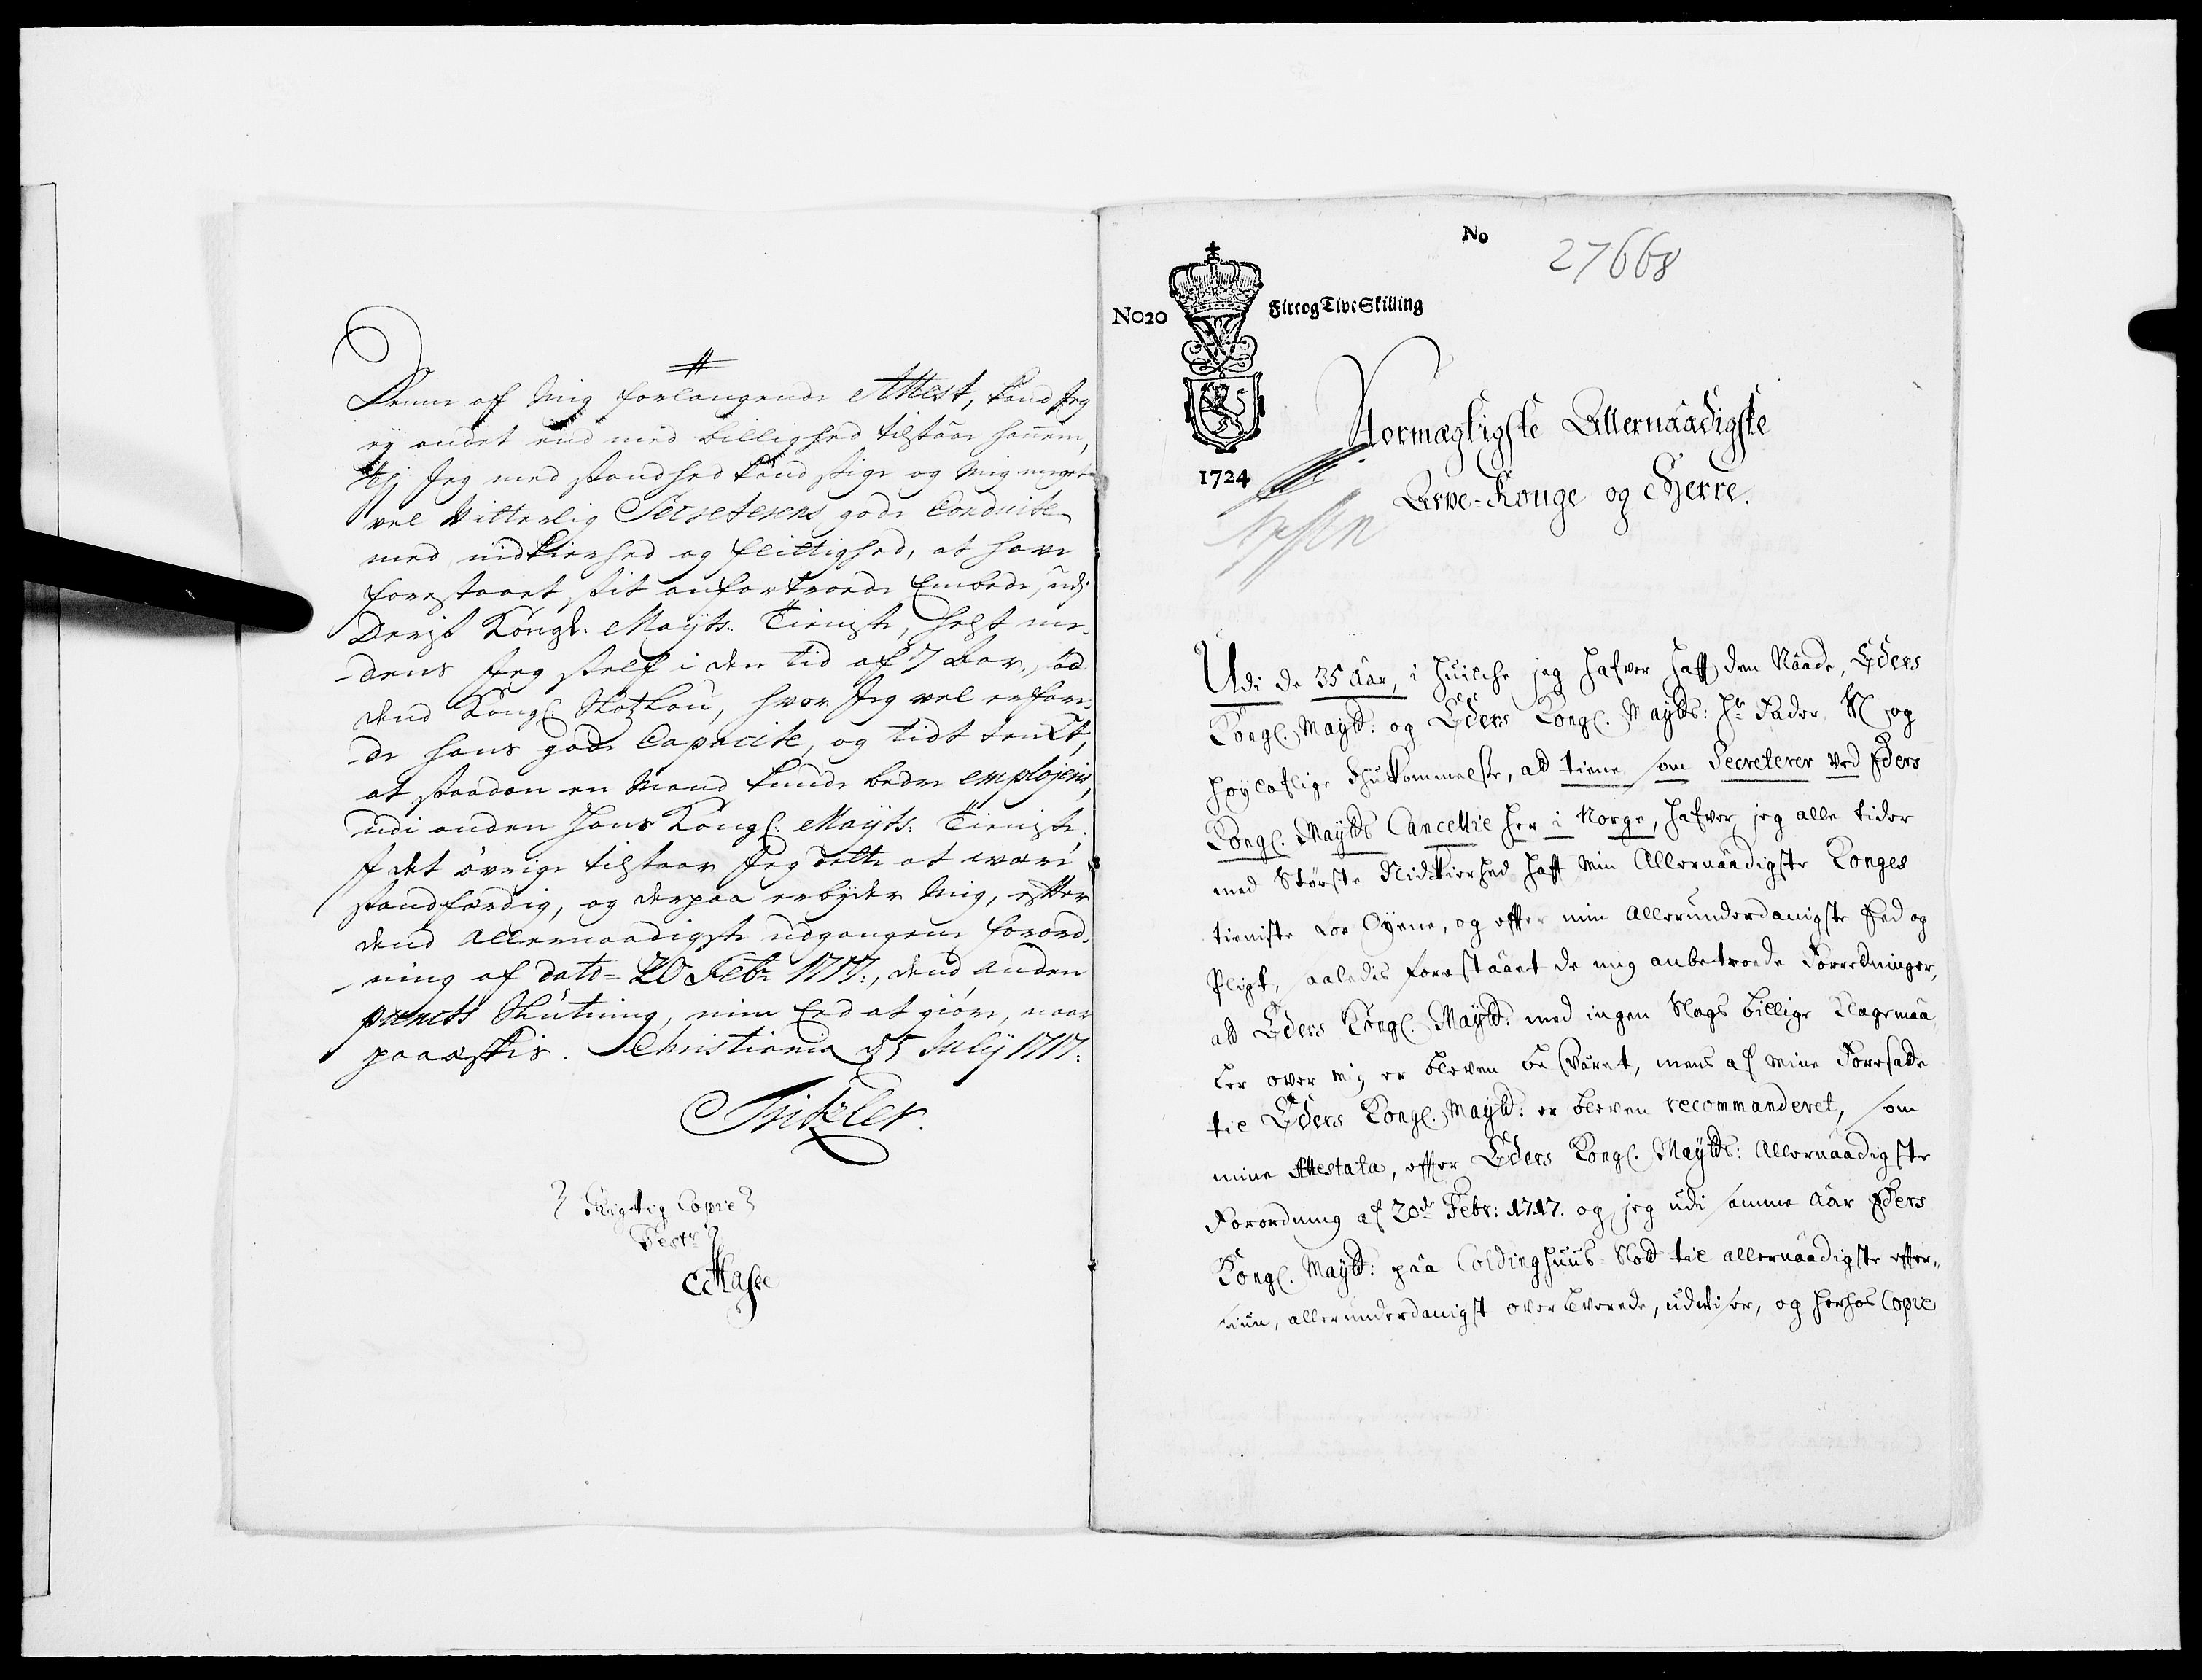 Denne af Mig forlangende Attest, kand Jeg
ej andet end med billighed tilstaae hannem,
Thj Jeg med sandhed kand sige og Mig meget
vel Vitterlig Secreterens gode Conduite
med nidkierhed og flittighed, at have
forestaaet sit anfortroede Embede, udj
Deris Kongl. Mayts. Tieniste, helst me-
dens Jeg self i den tid af 7 Aar, ad
dend Kongl. Slotzlou, hvor Jeg vel erfare-
de hans gode Capacite, og tidt tenkt,
at saadan en Mand kunde bedre emplojeris,
udi anden Hans Kongl. Mayts. Tieniste.
I det övrige tilstaar Jeg dette at være
sandfærdig, og derpaa erbyder Mig, effter
dend Allernaadigste udgangene forord-
ning af dato 20 Febr 1717:, dend anden
puncts Slutning, min Eed at giöre, naar
paaæskis. Christiania d 5 Julij 1717:
Tritzler.
Rigtig Copie
Test.
No
27668
No20 Fire og Tive Skilling
1724
Stormægtigste Allernaadigste
Arve-Konge og Herre.
Udi de 35 Aar, i huilche jeg hafver haft den Naade, Eders
Kongl. Mayt: og Eders Kongl. Mayts: Hr Fader, N og
höylaflige Ihukommelse, at tiene som Secreterer ved Eders
Kongl. Mayts Cancellie her i Norge, hafver jeg alle tider
med Störste Nidkierhed haft min Allernaadigste Konges
tieniste for Öyene, og effter min allerunderdanigste Eed og
Pligt, saaledis forestaaet de mig anbetroede Forretninger,
at Eders Kongl. Mayt: med ingen Slags billige Klagemaa
ler over mig er bleven besværet, mens af mine Foresatte
til Eders Kongl. Mayt: er bleven recommanderet, som
mine Attestata, effter Eders Kongl. Mayts: Allernaadigste
Forordning af 20de Febr: 1717. og jeg udi samme Aar Eders
Kongl. Mayt: paa Coldinghuus Slot til allernaadigste effter-
siun, allerunderdanigst overleverede, udviser, og herhos Copie